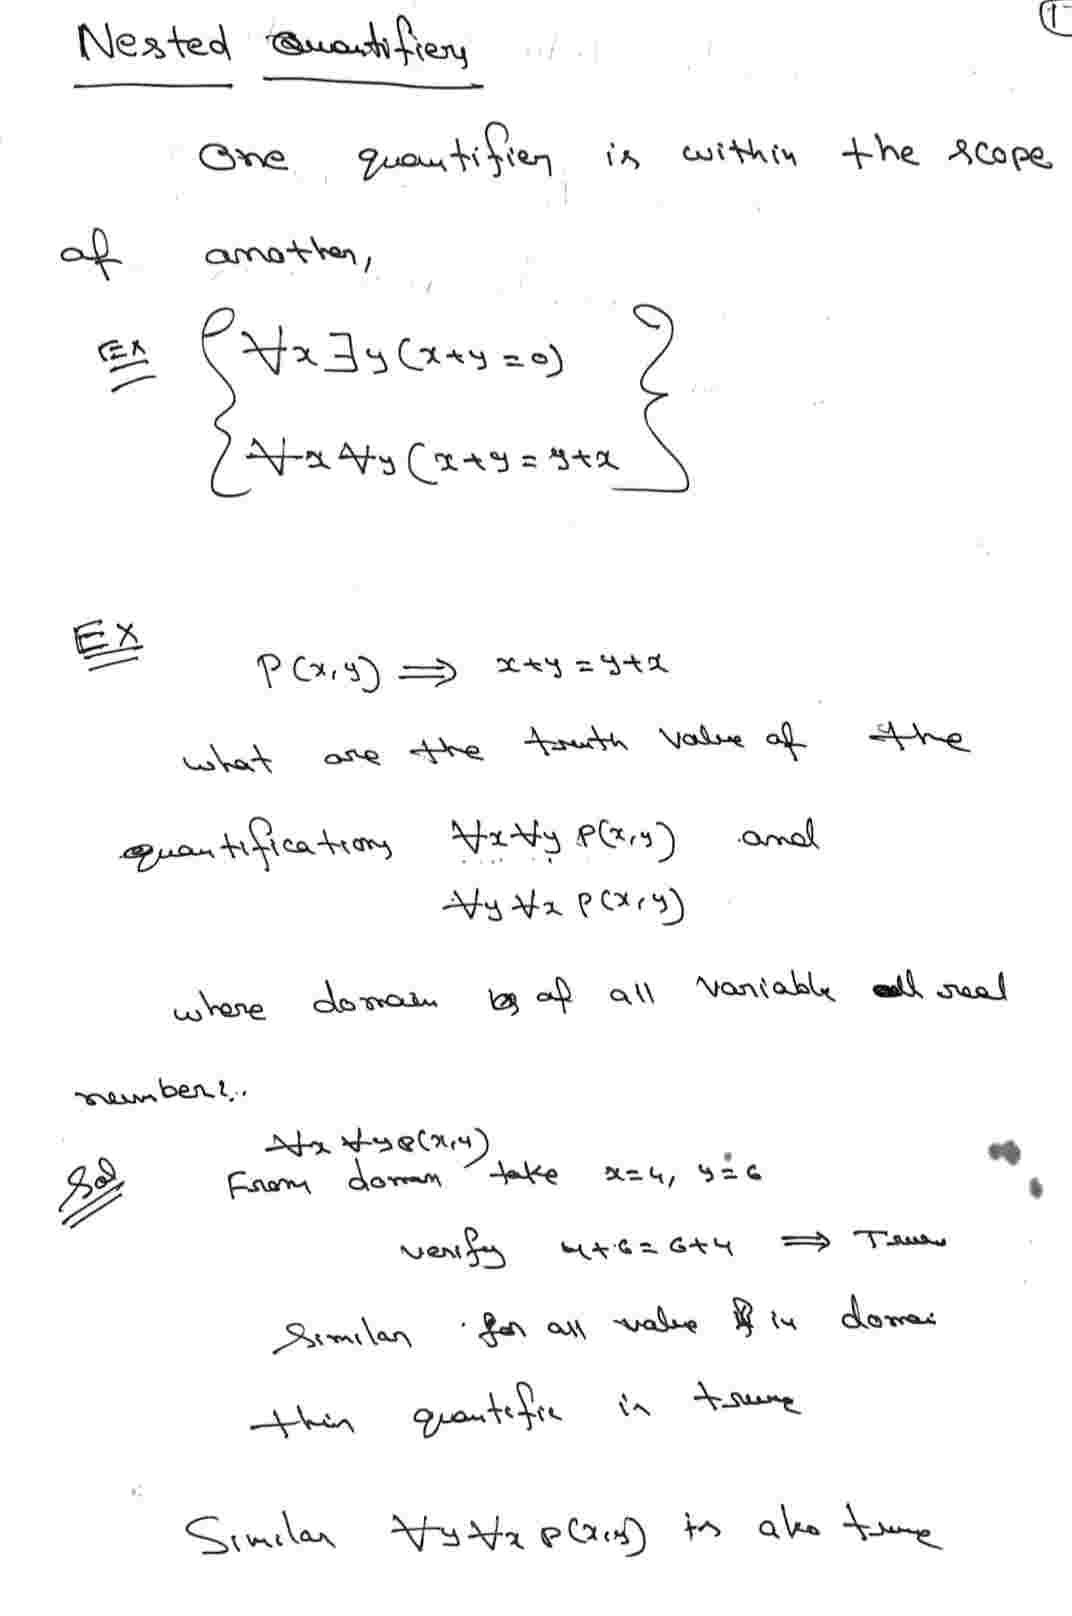 Nested Quantifiers
One quantifier is within the scope
of another,
Ex ∀x∃y(x+y=0)
∀x∀y(x+y=y+x
EX
P(x,y) ⟹ x+y=y+x
what are the truth value of the
quantifications ∀x∀y P(x,y) and
∀y∀x P(x,y)
where domain of all variable all real
numbers..
∀x ∀y P(x,y)
Sol From doman take x=4, y=6
verify 4+6=6+4 ⟹ True
Similar for all value in domai
this quantifie is true
Similar ∀y∀x P(x,y) is also true